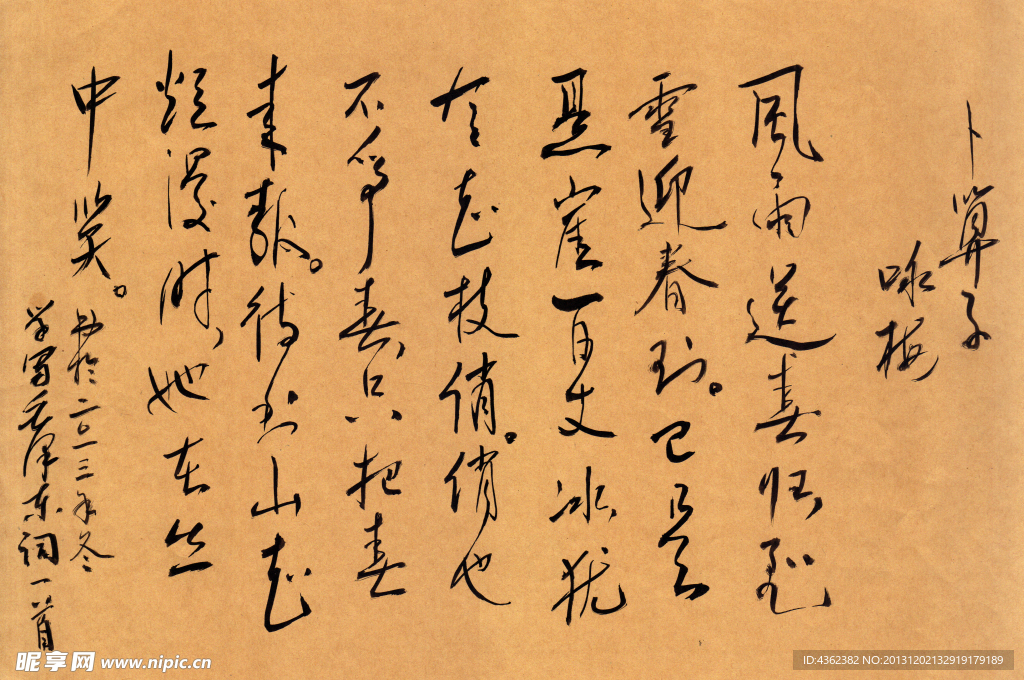 卜算子
咏梅
风雨送春归飞
雪迎春到。已是
悬崖百丈冰犹
有花枝俏。俏也
不争春只把春
来报。待到山花
烂漫时，她在丛
中笑。
书于二〇一三年冬
学写毛泽东词一首
昵享网 www.nipic.cn
ID:4362382 NO:20131202132919179189